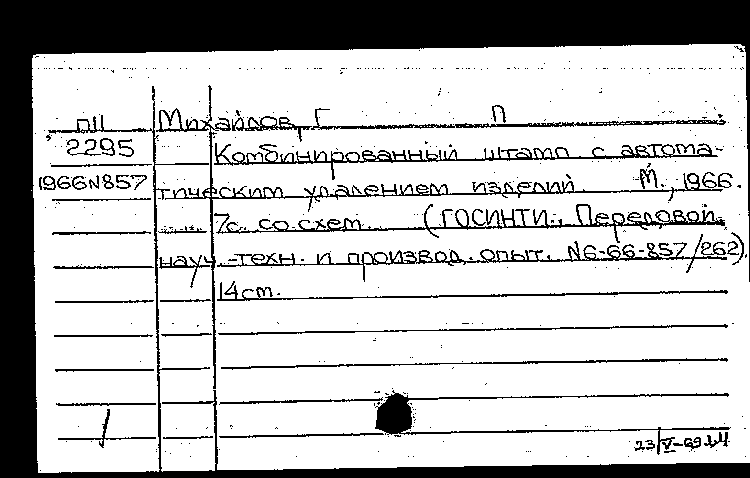 ПII Михайлов, Г П
2295 Комбинированный штамп с автома-
1966N857 тическим удалением изделий. М., 1966.
7с. со схем. (ГОСИНТИ. Передовой
науч.-техн. и производ. опыт. N6-66-857/262).
14 см.
23/V-69